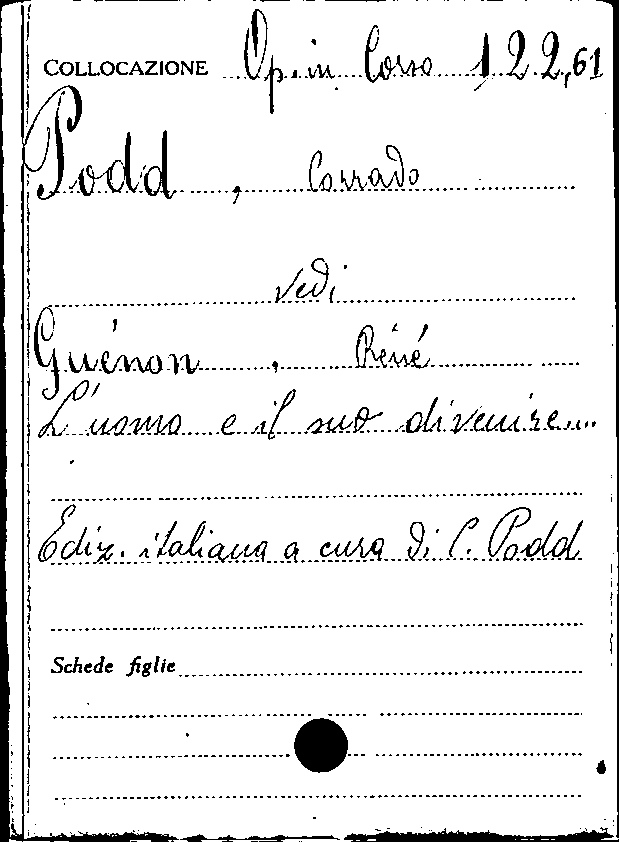 COLLOCAZIONE Op. in Corso 122,61
Podd, Corrado
vedi
Guénon, Réné
L'uomo e il suo divenire....
Ediz. italiana a cura di C. Podd
Schede figlie